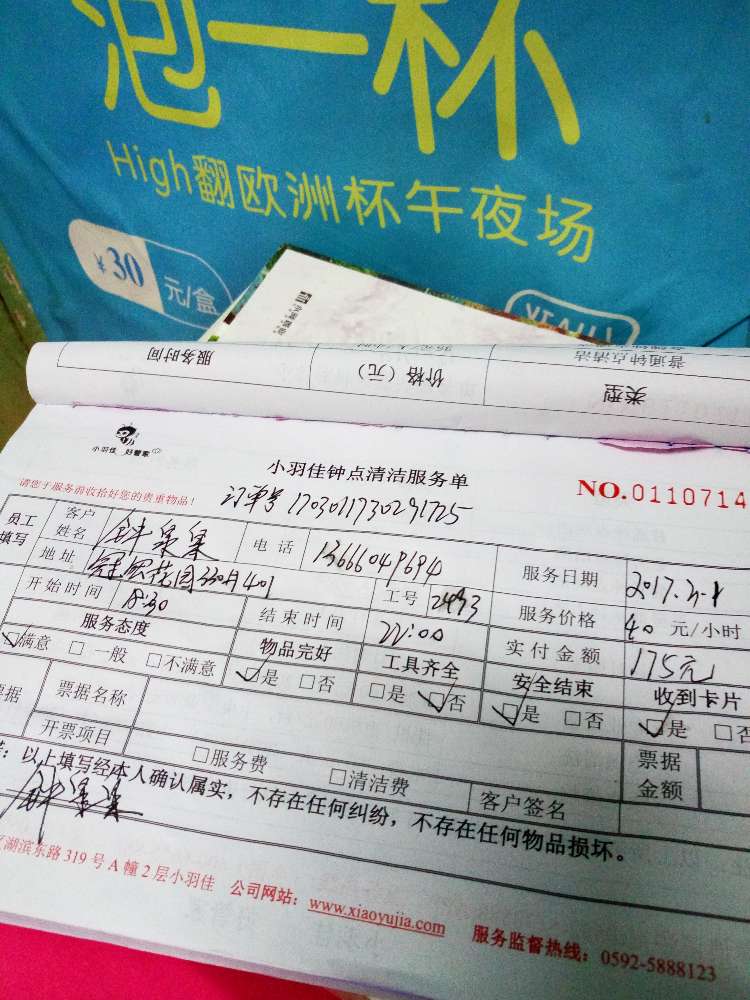 泡一杯
High翻欧洲杯午夜场
¥30元/盒
服务时间 价格（元） 普通钟点清洁
类型
小羽佳 好管家
小羽佳钟点清洁服务单
NO.0110714
请您于服务前收拾好您的贵重物品！
订单号 1703011730291725
员工填写 客户姓名 电话 13666049694 服务日期 2017.3.1
地址 冠宏花园330号401 工号 2493 服务价格 40 元/小时
开始时间 18:30 结束时间 22:00 实付金额 175元
服务态度 物品完好 工具齐全 安全结束 收到卡片
☑满意 □一般 □不满意 ☑是 □否 □是 ☑否 ☑是 □否 ☑是 □否
票据名称
开票项目 □服务费 □清洁费 票据金额
以上填写经本人确认属实，不存在任何纠纷，不存在任何物品损坏。
客户签名
湖滨东路319号A幢2层小羽佳 公司网站：www.xiaoyujia.com 服务监督热线：0592-5888123